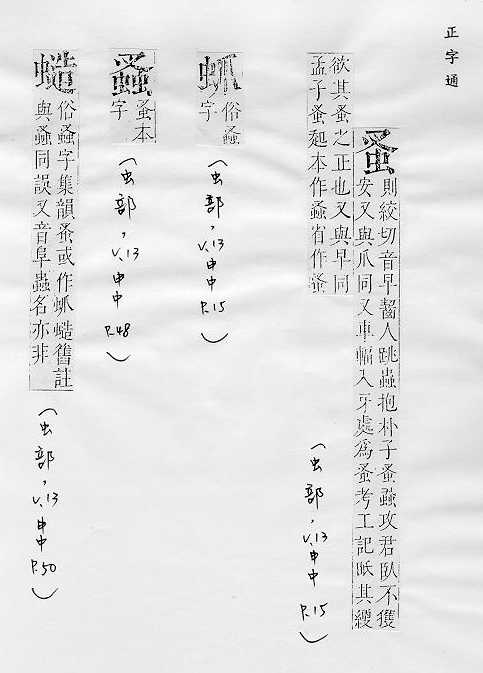 正字通
蚤
則絞切音早齧人跳蟲抱朴子蚤蝨攻君臥不獲
安又與爪同又車輻入牙處為蚤考工記眡其綆
欲其蚤之正也又與早同
孟子蚤起本作𧎮省作蚤
(虫部,V.13申中P.15)
俗𧎮
字
(虫部,V.13申中P.15)
𧎮
蚤本
字
(虫部,V.13申中P.48)
俗𧎮字集韻蚤或作舊註
與𧎮同誤又音阜蟲名亦非
(虫部,V.13申中P.50)